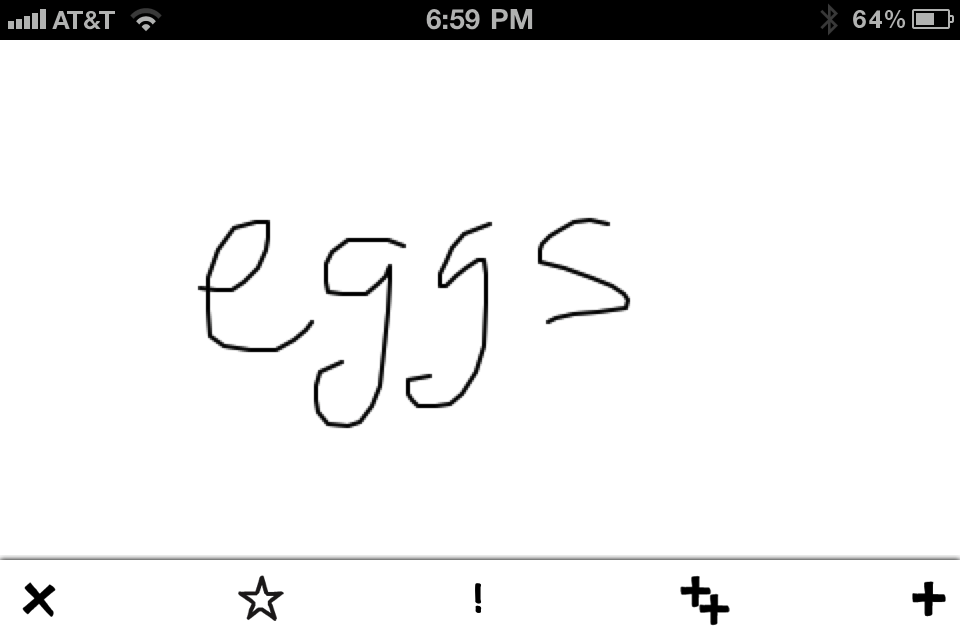 AT&T 6:59 PM 64%
eggs
!